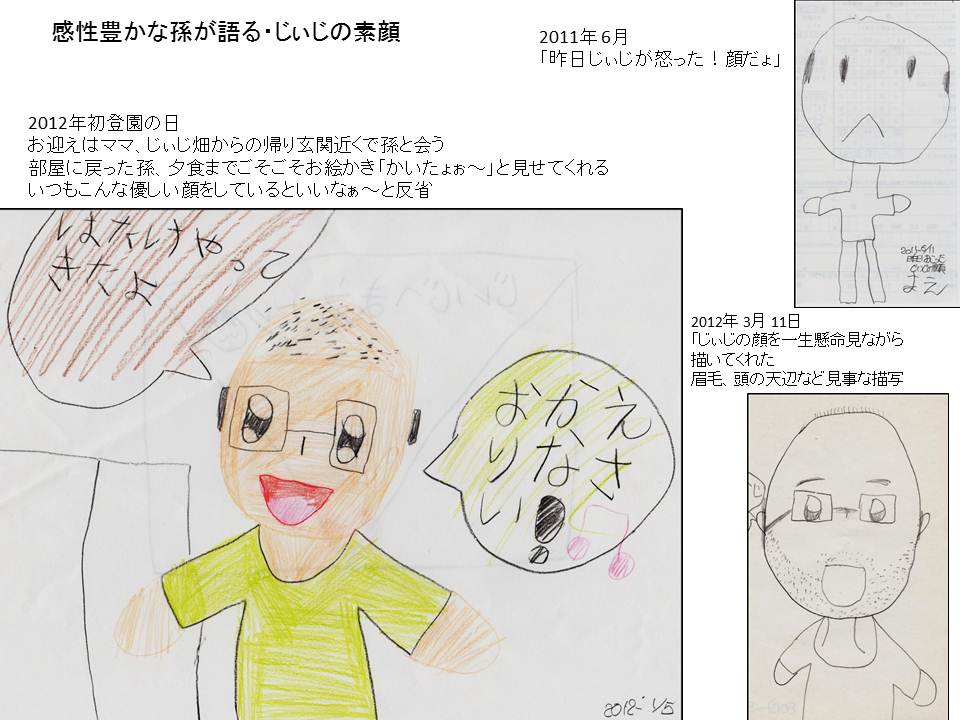 感性豊かな孫が語る・じぃじの素顔
2011年 6月
「昨日じぃじが怒った！顔だょ」
2012年初登園の日
お迎えはママ、じぃじ畑からの帰り玄関近くで孫と会う
部屋に戻った孫、夕食までごそごそお絵かき「かいたょぉ～」と見せてくれる
いつもこんな優しい顔をしているといいなぁ～と反省
はたけやって
きたよ
おかえ
りなさ
い!
2012 1/5
昨日おこった
2012年 3月 11日
「じぃじの顔を一生懸命見ながら
描いてくれた
眉毛、頭の天辺など見事な描写